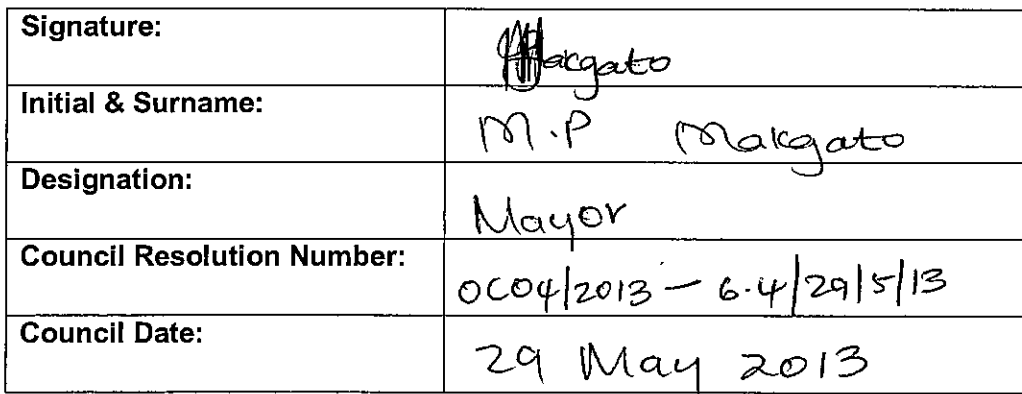 Signature: Makgato
Initial & Surname: M.P Makgato
Designation: Mayor
Council Resolution Number: OC04/2013 - 6.4/29/5/13
Council Date: 29 May 2013